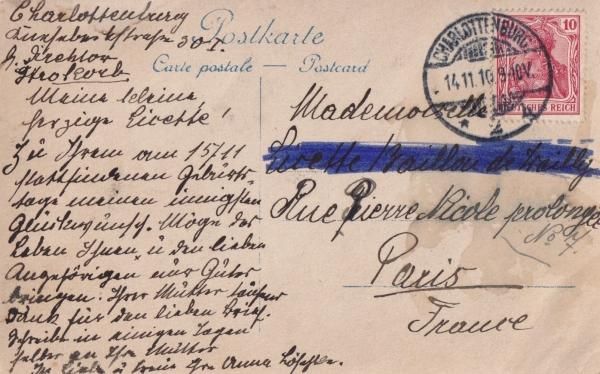 Charlottenburg
30 I.
Direktor
Strokorb
Postkarte
Carte postale — Postcard
CHARLOTTENBURG
14.11.10. 9-10V.
* 2
10
DEUTSCHES REICH
Meine kleine,
herzige Lisette!
Zu Ihrem am 15/11
stattfindenen Geburts-
tage meinen innigsten
Glückwunsch. Möge das
Leben Ihnen u den lieben
Angehörigen nur Gutes
bringen. Ihrer Mutter tausend
Dank für den lieben Brief.
Schreibe in einigen Tagen
selber an Ihre Mutter
In Liebe u Treue Ihre Anna
Mademoiselle
Lisette
Rue Pierre Nicole prolongée
No 7.
Paris
France